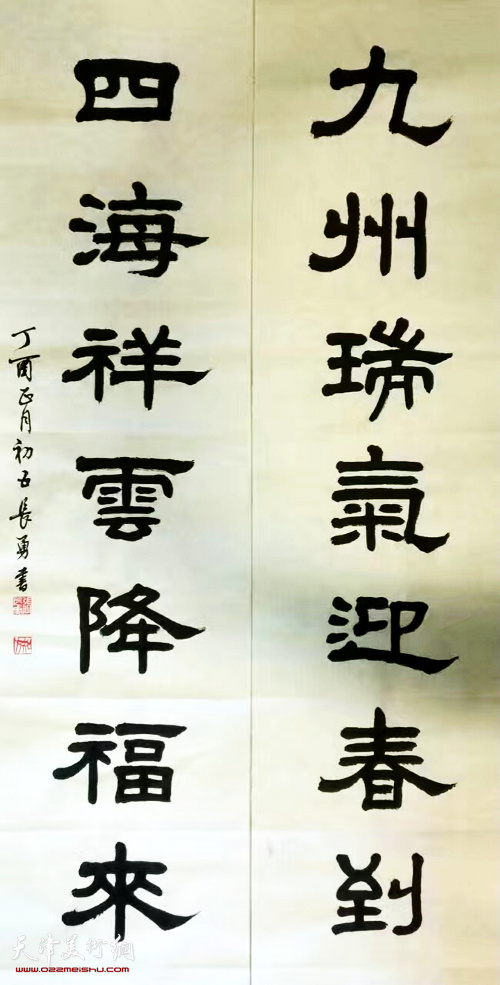 九州瑞氣迎春到
四海祥雲降福來
丁酉正月初五長勇書
天津美術網
www.022meishu.com